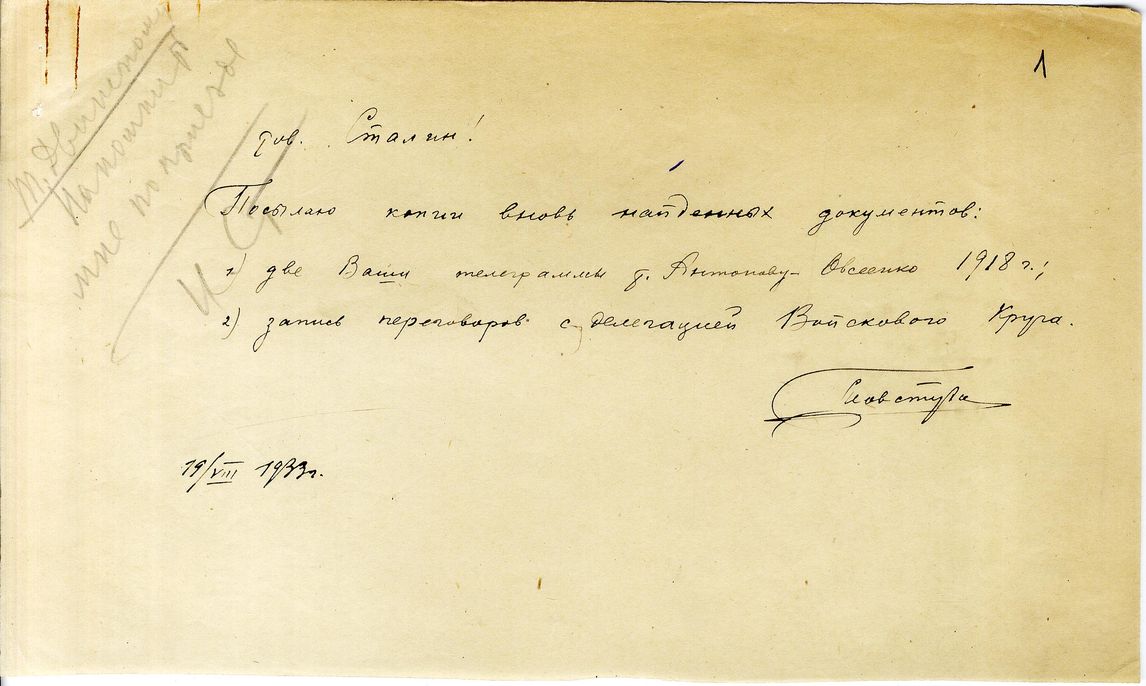 1
т. Двинскому
Напомнить
мне по приезде
И Ст
тов. Сталин!
Посылаю копии вновь найденных документов:
1) две Ваши телеграммы т. Антонову-Овсеенко 1918 г.;
2) запись переговоров с делегацией Войскового Круга.
Товстуха
19/VIII 1933г.